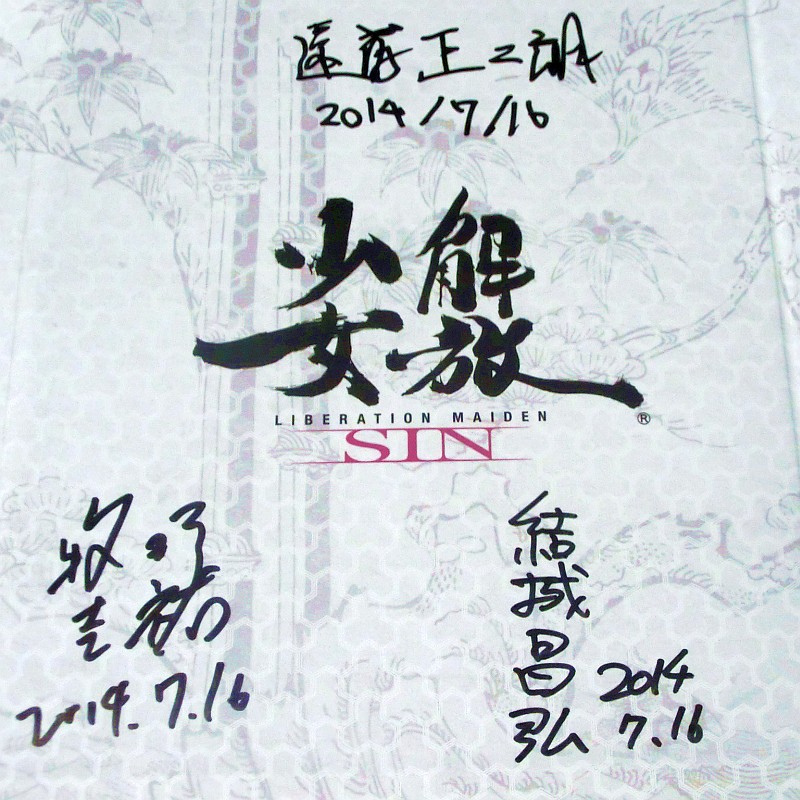 遠藤正二朗
2014/7/16
解放
少女
LIBERATION MAIDEN ®
SIN
牧野
圭祐
2014.7.16
結城昌弘
2014
7.16